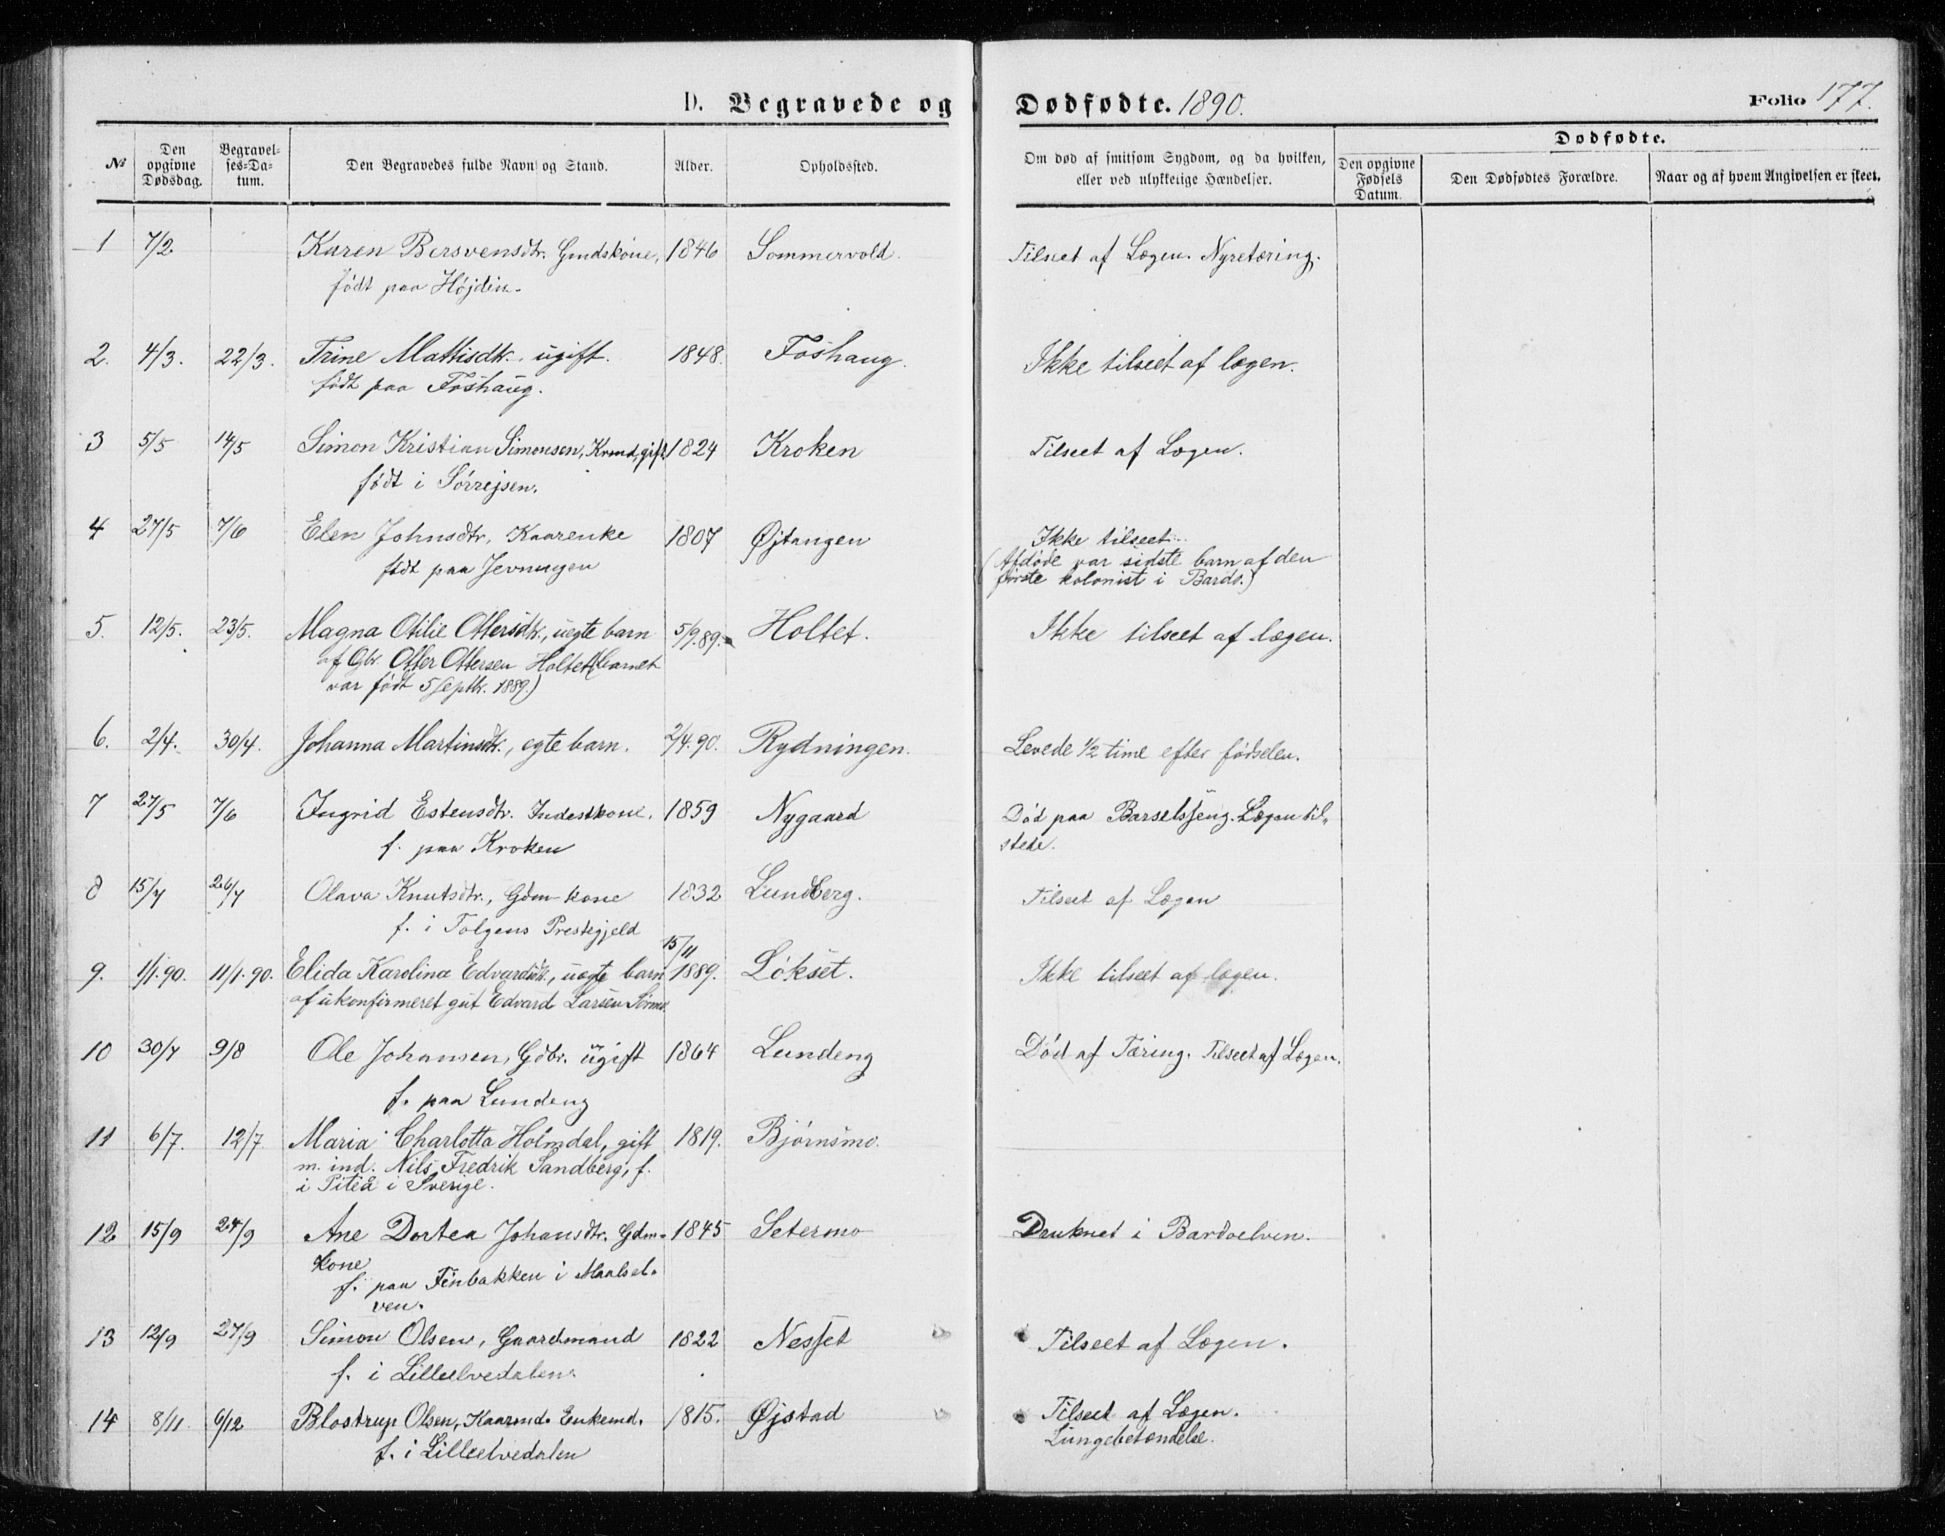 D. Begravede og Dødfødte. 1890. Folio 177.
Dødfødte.
№ Den opgivne Dødsdag. Begravel-ses-Da-tum. Den Begravedes fulde Navn og Stand. Alder. Opholdssted. Om død af smitsom Sygdom, og da hvilken, eller ved ulykkelige Hændelser. Den opgivne Fødsels Datum. Den Dødfødtes Forældre. Naar og af hvem Angivelsen er skeet.
1 7/2 Karen Bersvensdtr. Gmdskone, 1846 Sommervold. Tilseet af Lægen. Nyretæring.
født paa Højdin.
2. 4/3. 22/3. Trine Mattisdtr. ugift. 1848. Foshaug. Ikke tilseet af lægen.
født paa Foshaug.
3 5/5 14/5 Simon Kristian Simonsen, Krmd, gift 1824 Kroken Tilseet af Lægen.
født i Sørrejsen.
4 27/5 7/6 Elen Johnsdtr, Kaarenke 1807 Øjtangen Ikke tilseet.
født paa Jevningen (Afdøde var sidste barn af den
første kolonist i Bardo.)
5. 12/5. 23/5. Magna Otilie Ottersdtr., uegte barn 5/9.89. Holtet. Ikke tilseet af lægen.
af Gbr. Otter Ottersen Holtet (barnet
var født 5 Septbr. 1889.)
6. 2/4. 30/4. Johanna Martinsdtr., egte barn. 2/4.90. Rydningen. Levede 1/2 time efter fødselen.
7 27/5 7/6 Ingrid Estensdtr. Inderstkone. 1859 Nygaard Død paa Barselsseng. Lægen til-
f. paa Kroken stede.
8 15/7 26/7 Olava Knutsdtr., Gdm-kone 1832 Lundberg. Tilseet af Lægen
f. i Tolgens Prestegjeld
15/11
9. 1/1.90. 11/1.90. Elida Karolina Edvardsdtr., uegte barn 1889. Løkset. Ikke tilseet af lægen.
af ukonfirmeret gut Edvard Larsen Sørmo.
10 30/7 9/8 Ole Johansen, Gdbr. ugift 1864 Lundeng Død af Tæring. Tilseet af Lægen.
f. paa Lundeng
11 6/7. 12/7. Maria Charlotta Holmdal, gift 1819. Bjørnsmo.
m. ind. Nils Fredrik Sandberg, f.
i Piteå i Sverige.
12 15/9 24/9 Ane Dortea Johansdtr. Gdm- 1845 Setermo Druknet i Bardoelven.
kone
f. paa Finbakken i Maalsel-
ven.
13 12/9 27/9 Simon Olsen, Gaardmand 1822 Nesset Tilseet af Lægen.
f. i Lilleelvedalen.
14 8/11 6/12 Blostrup Olsen, Kaarmd. Enkemd. 1815. Øjstad Tilseet af Lægen.
f. i Lilleelvedalen Lungebetændelse.